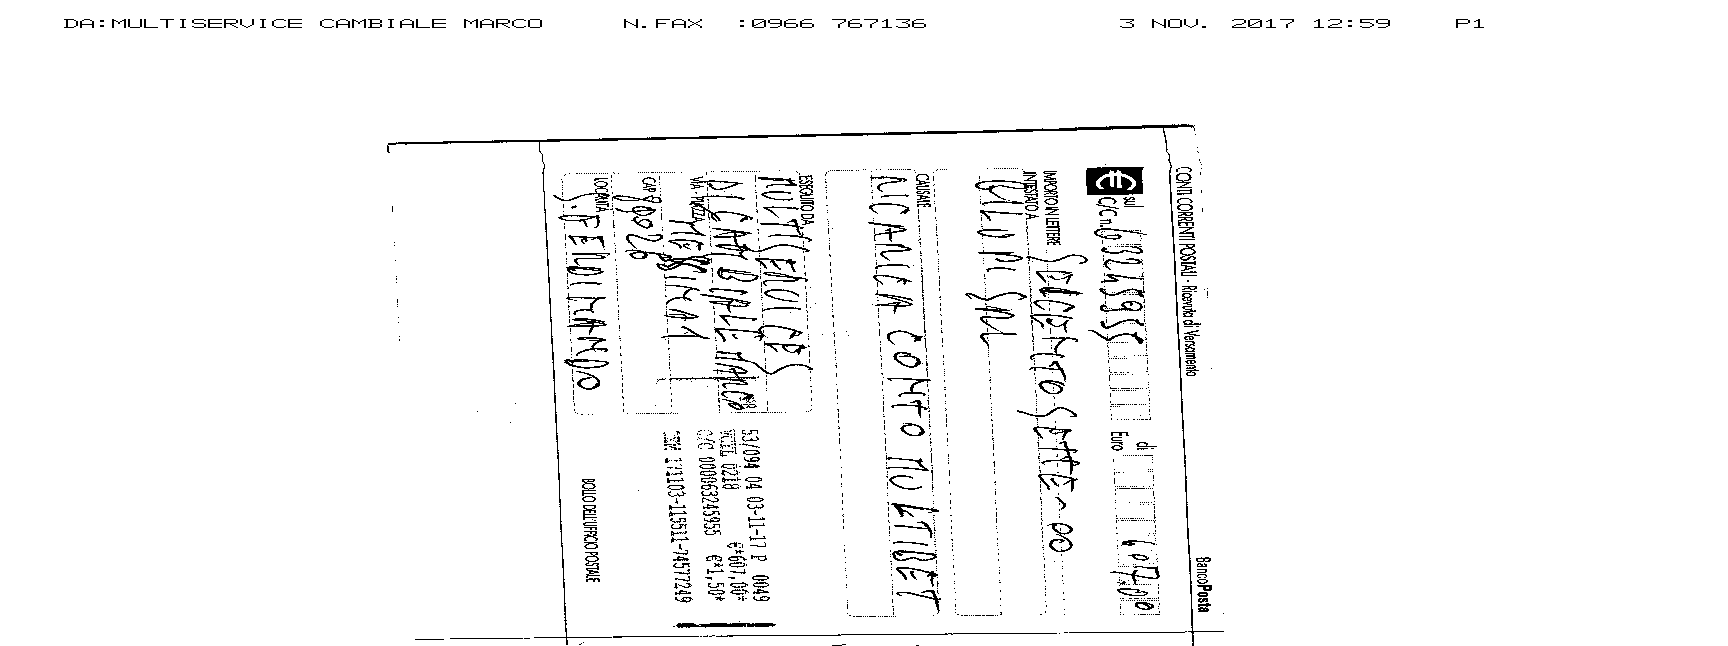 DA:MULTISERVICE CAMBIALE MARCO N.FAX :0966 767136 3 NOV. 2017 12:59 P1
CONTI CORRENTI POSTALI - Ricevuta di Versamento BancoPosta
€ sul C/C n. 63245955 di Euro 607,00
IMPORTO IN LETTERE SEICENTO SETTE~00
INTESTATO A
SRL
CAUSALE
RICARICA CONTO MULTIBET
ESEGUITO DA
MULTISERVICES
DI CAMBIALE MARCO
VIA - PIAZZA MESSINA 1
CAP 89026
LOCALITÀ
S. FERDINANDO
53/094 04 03-11-17 P 0049
VCYL 0218 €*607,00*
C/C 000063245955 €*1,50*
171103-115511-74577249
BOLLO DELL'UFFICIO POSTALE